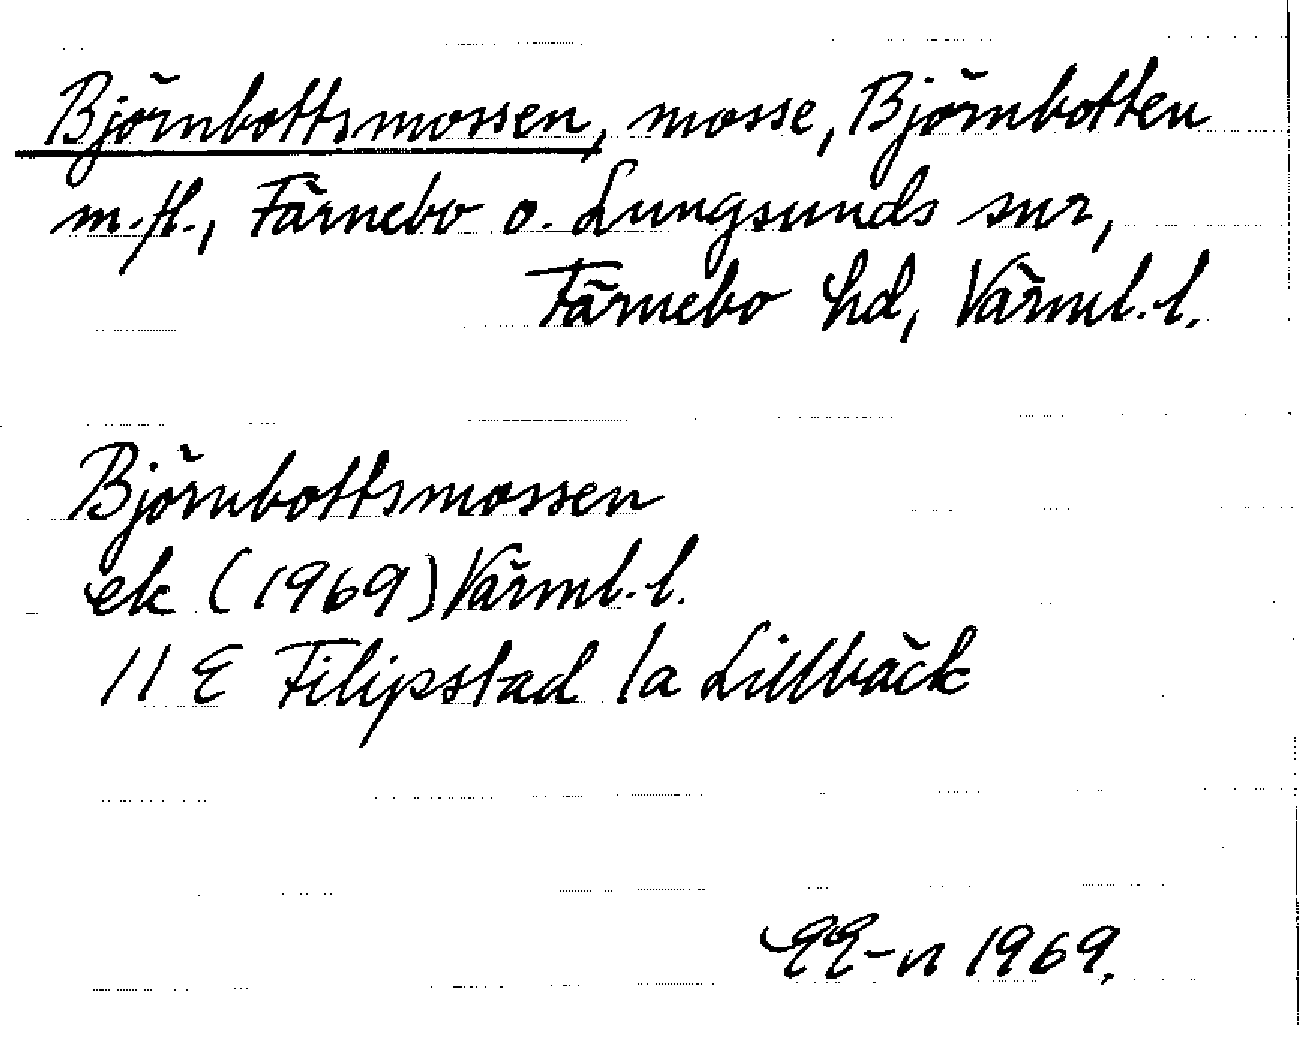 Björnbottsmossen, mosse, Björnbotten
m.fl., Färnebo o. Lungsunds snr,
Färnebo hd, Värml.l.
Björnbottsmossen
ek (1969) Värml.l.
11 E Filipstad 1a Lillbäck
EE-n 1969.